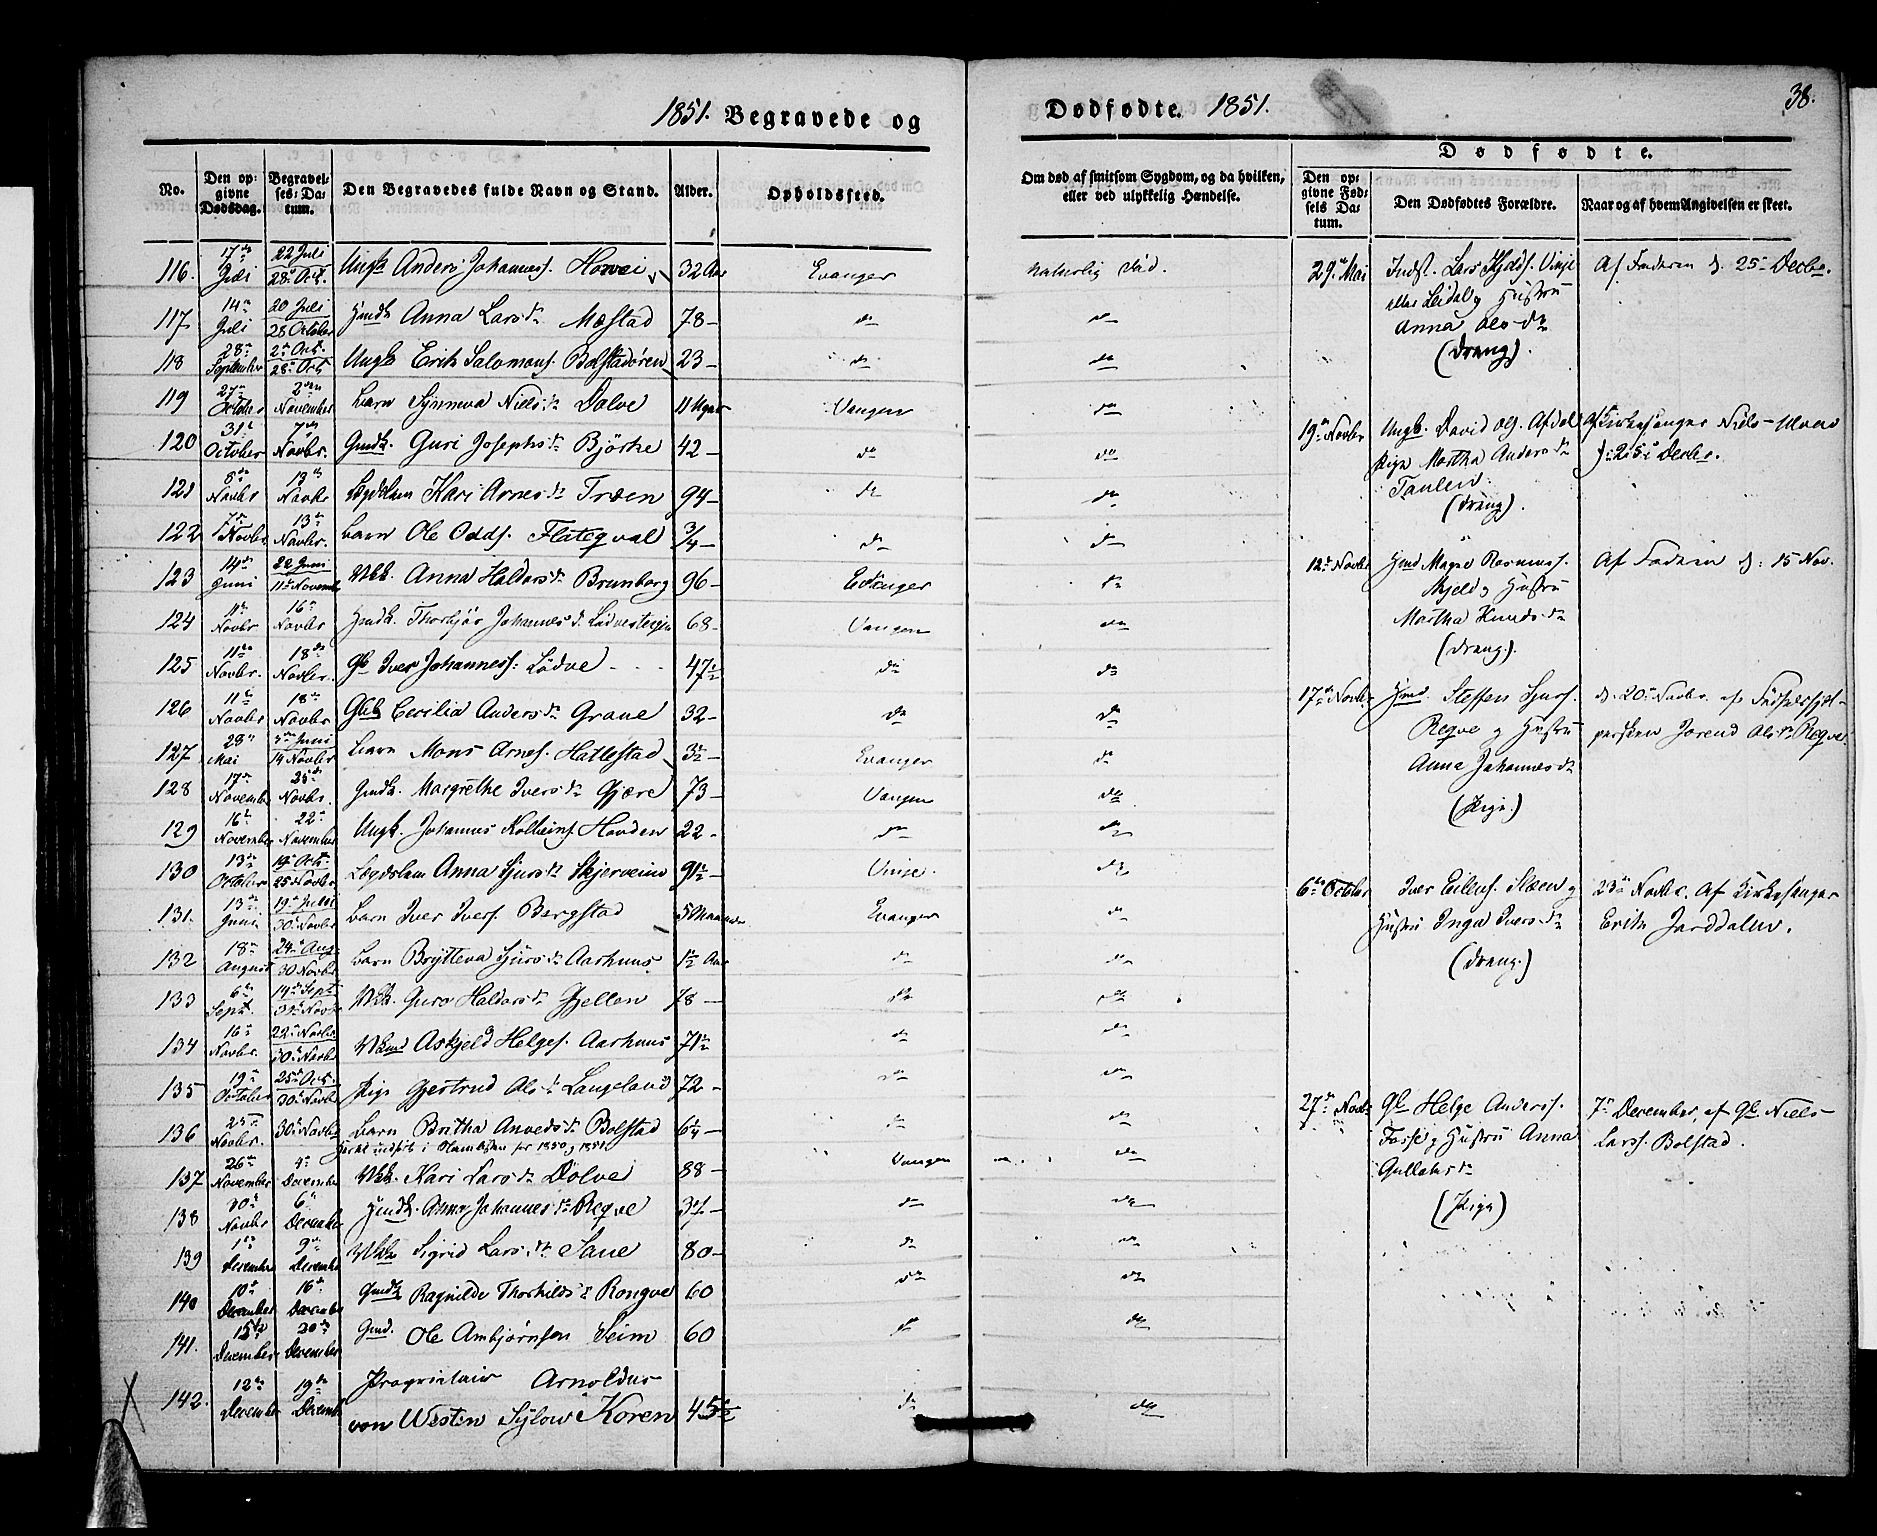 1851. Begravede og
Dødfødte. 1851.
38.
No.
Den opgivne Dødsdag.
Begravelses-Datum.
Den Begravedes fulde Navn og Stand.
Alder.
Opholdssted.
Om død af smitsom Sygdom, og da hvilken, eller ved ulykkelig Hændelse.
Dødfødte.
Den opgivne Fødsels Datum.
Den Dødfødtes Forældre.
Naar og af hvem Angivelsen er skeet.
116. 17de Juli 22 Juli 28de Oct. Ungk Anders Johanness. Horvei 32 Aar Evanger naturlig Død.
117 14de Juli 20 Juli 28 October Hmdk Anna Larsdr Mæstad 78 – do do
118 28de September 2den Oct. 28de Oct Ungk Erik Salomons. Bolstadøren 23 – do do
119 27de October 2den November Barn Synneva Nielsdr Dolve 11 Uger Vangen do
120 31te October 7de Novbr. Gmdk. Guri Josephsdr Björke 42 – do do
121 8de Novbr 13de Novbr Lægdslem Kari Arnesdr Træen 94 – do do
122 7de Novbr 13de Novbr. Barn Ole Odds. Flateqval 3/4 – do do
123 14de Juni 22 Juni 11te November Vkk. Anna Haldorsdr Brunborg 96 – Evanger do
124 11te Novbr 16de Novbr Hmdk. Thorbjør Johannesd. 68 – Vangen do
125 11te Novbr. 18de Novbr. Gb Iver Johanness. Lödve 47½ do do
126 11te Novbr 18de Novbr Gbk Cecilia Andersdr Grane 32 – do do
127 28de Mai 1ste Juni 14 Novbr Barn Mons Arnes. Hallestad 3½ – Evanger do
128 17de November 25de Novbr. Gmdk. Margrethe Iversdr Gjære 73 – Vangen do
129 16de November 22de November Ungk. Johannes Kolbeins. Honden 22 – do do
130 13de October 19de Oct. 25de Novbr Lægdslem Anna Sjursdr Skjerveim 91½ – Vinje. do
131. 13de Juni 19de Juli 30te Novbr Barn Iver Ivers. Bergstad 5 Maaneder Evanger do
132 18de August 24de Aug. 30 Novbr Barn Brytteva Sjursdr Aarhuus 1½ Aar do do
133 6te Sept. 14de Sept 30te Novbr Vkk. Guro Haldorsdr Gjellen 78 – do do
134 16de Novbr. 22de Novbr 30te Novbr Vkmd Askjeld Helges. Aarhuus 71½ do do
135 19de October 25de Oct. 30te Novbr Pige Gjertrud Olsdr Langeland 72 – do do
136 25de Novbr. 30te Novbr Barn Britha Anvedsdr Bolstad 6¼ – do do
137 26de November 4de December Vkk. Kari Larsdr Dolve 88 – Vangen do
138 30te Novbr 6te December Hmdk. Anna Johannesdr Reqve 34 – do do
139 1ste December 9de December Vkk Sigrid Larsdr Saue 80 – do do
140 10de December 16de December Gmdk Ragnilde Thorkildsdr Rongve 60 do do
141. 15de December 20de December Gmd. Ole Ambjørnsen Seim 60 do do
142. 12te December 19de December Proprietair Arnoldus
von Westen Sylow Koren 45½ do do
29de Mai Indst. Lars Kjelds. Vinje
eller Leidal og Hustru
Anna Olsdr
(Dreng).
Af Faderen d. 25de Decbr.
19de Novbr Ungk. David Ols. Afdal
Pige Martha Andersdr
Taulen.
(Dreng).
Af Kirkesanger Niels Ulvad
d. 25de Decbr.
12te Novbr Hmd Magne Rasmuss.
Skjeld og Hustru
Martha Knudsdr
(Dreng.).
Af Faderen d. 15 Nov.
17de Novbr Hmd. Steffen Sjurs.
Reqve og Hustru
Anna Johannesdr
(Pige.)
d. 20de Novbr. af Fødselshjel-
persken Jorend Olsdr Reqve.
6te October Iver Eilevs. Stæen og
Hustru Inga Iversdr
(Dreng.)
23de Novbr. Af Kirkesanger
Erik Jorddalen.
27de Novbr Gb Helge Anderss.
Fosse og Hustru Anna
Gullaksdr
(Pige)
7de December, af Gb Niels
Larss. Bolstad.